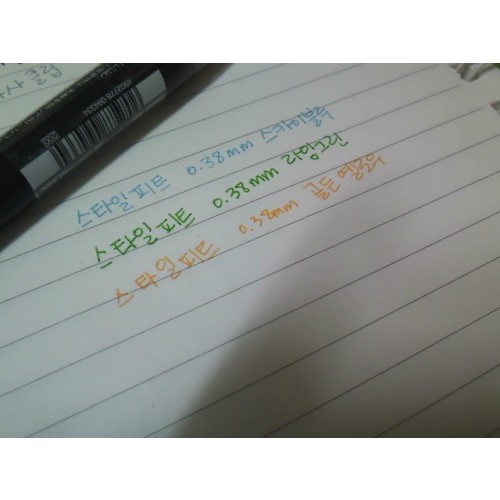 스타일피트 0.38mm 스카이블루
스타일피트 0.38mm 라임그린
스타일피트 0.38mm 골든옐로우